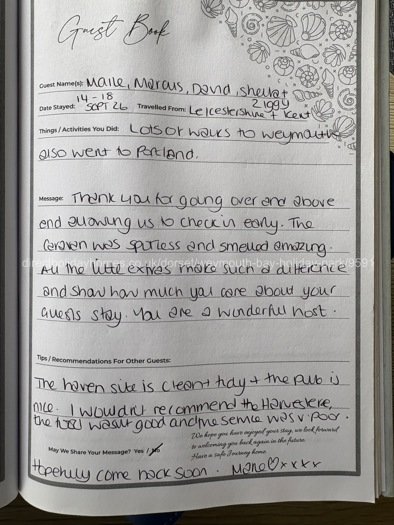 Guest Book
Guest Name(s): Marie, Marcus, David, Sheila +
Ziggy
Date Stayed: 14-18 SEPT 26 Travelled From: Leicestershire + Kent
Things / Activities You Did: Lots of walks to Weymouth
also went to Portland.
Message: Thank you for going over and above
and allowing us to check in early. The
caravan was spotless and smelled amazing.
All the little extras make such a difference
and show how much you care about your
guests stay. You are a wonderful host.
directholidayhomes.co.uk/dorset/weymouth-bay-holiday-park/9591
Tips / Recommendations For Other Guests:
The haven site is clean + tidy + the pub is
nice. I wouldn't recommend the Harvester,
the food wasn't good and the service was v poor.
We hope you have enjoyed your stay, we look forward
to welcoming you back again in the future.
Have a safe Journey home.
May We Share Your Message? Yes / No
Hopefully come back soon. Marie ♡xxxx